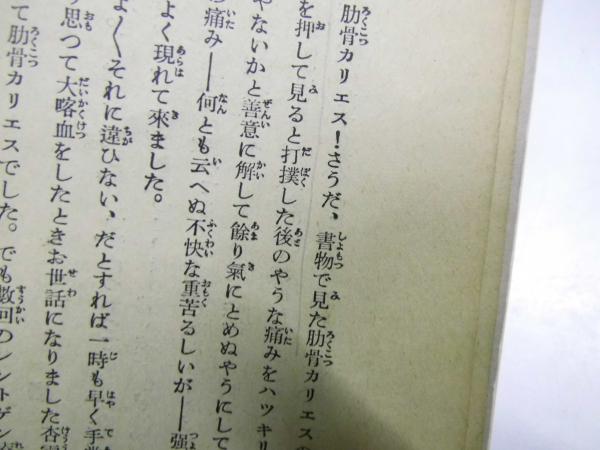 肋骨カリエス!さうだ、書物で見た肋骨カリエスの
を押して見ると打撲した後のやうな痛みをハツキリ
やないかと善意に解して餘り氣にとめぬやうにして
痛み——何とも云へぬ不快な重苦るしいが——强
よく現れて來ました。
よ〳〵それに違ひない、だとすれば一時も早く手
思つて大喀血をしたときお世話になりました杏
て肋骨カリエスでした。でも數回のレントゲン